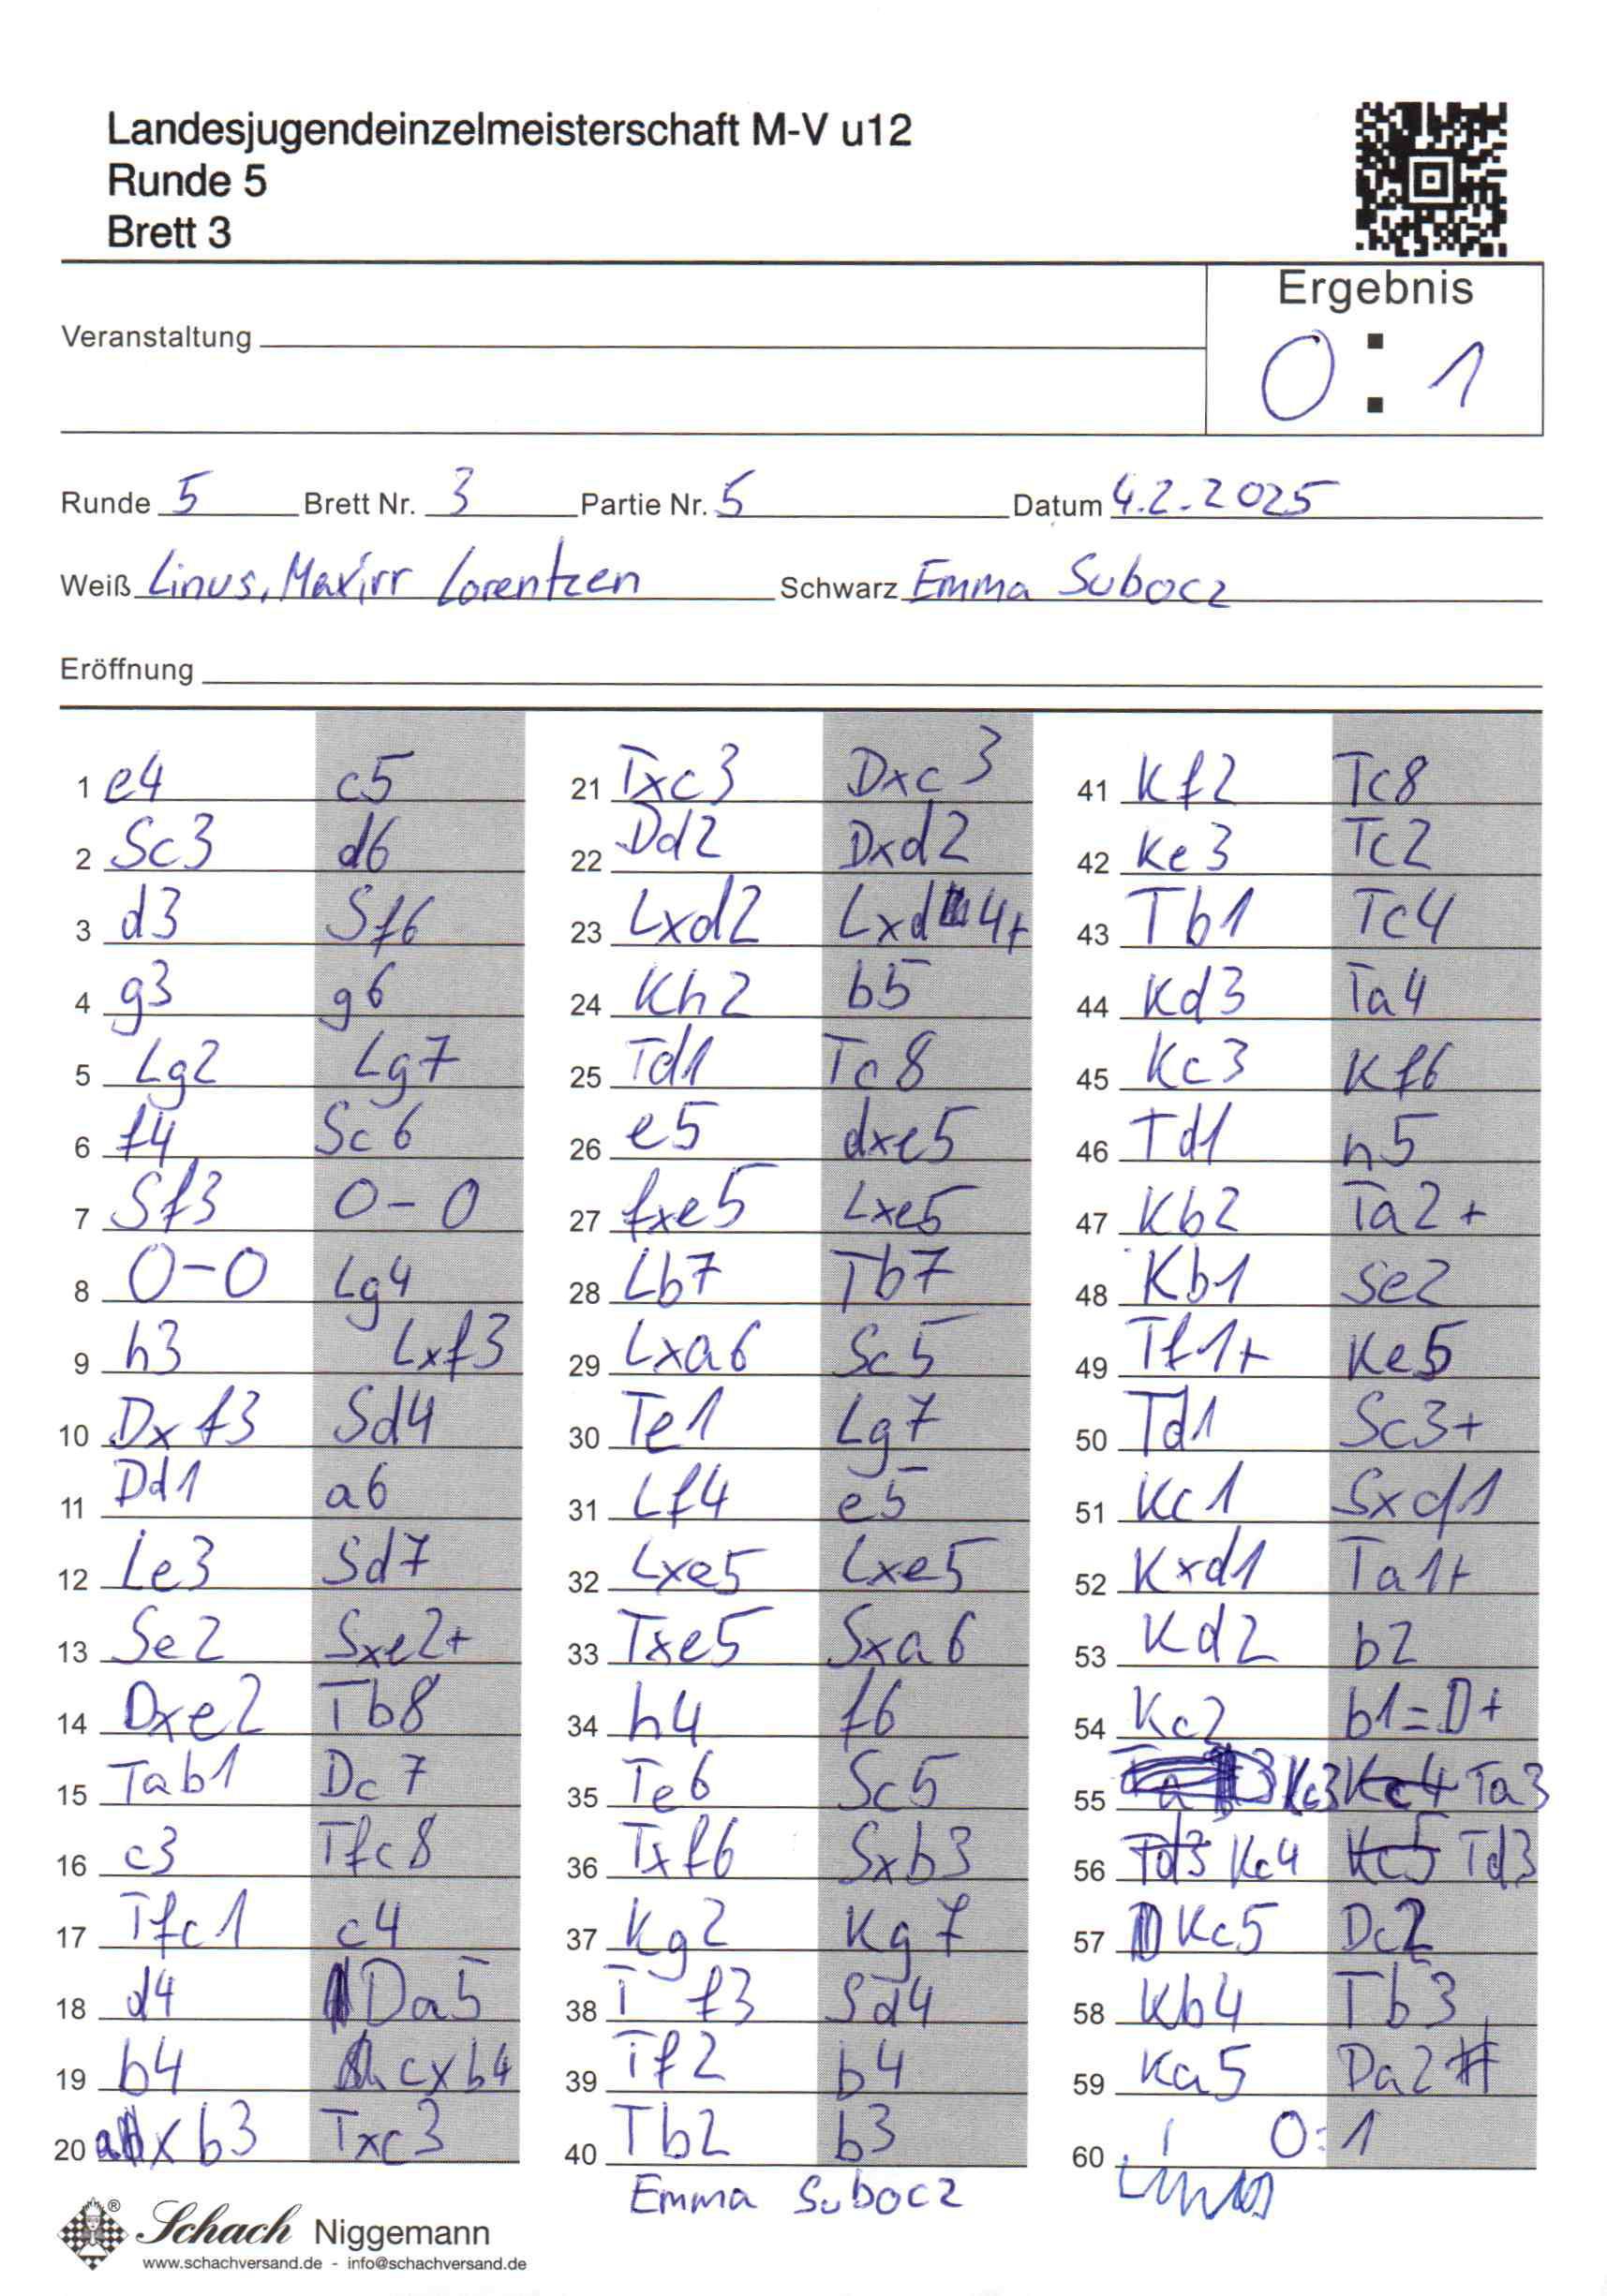 Landesjugendeinzelmeisterschaft M-V u12
Runde 5
Brett 3
Ergebnis
0 : 1
Veranstaltung
Runde 5 Brett Nr. 3 Partie Nr. 5 Datum 4.2.2025
Weiß Linus, Lorentzen Schwarz Emma Subocz
Eröffnung
1 e4 c5
2 Sc3 d6
3 d3 Sf6
4 g3 g6
5 Lg2 Lg7
6 f4 Sc6
7 Sf3 0-0
8 0-0 Lg4
9 h3 Lxf3
10 Dxf3 Sd4
11 Dd1 a6
12 Le3 Sd7
13 Se2 Sxe2+
14 Dxe2 Tb8
15 Tab1 Dc7
16 c3 Tfc8
17 Tfc1 c4
18 d4 Da5
19 b4 cxb4
20 axb3 Txc3
21 Txc3 Dxc3
22 Dd2 Dxd2
23 Lxd2 Lxd4+
24 Kh2 b5
25 Td1 Tc8
26 e5 dxe5
27 fxe5 Lxe5
28 Lb7 Tb7
29 Lxa6 Sc5
30 Te1 Lg7
31 Lf4 e5
32 Lxe5 Lxe5
33 Txe5 Sxa6
34 h4 f6
35 Te6 Sc5
36 Txf6 Sxb3
37 Kg2 Kg7
38 Tf3 Sd4
39 Tf2 b4
40 Tb2 b3
41 Kf2 Tc8
42 Ke3 Tc2
43 Tb1 Tc4
44 Kd3 Ta4
45 Kc3 Kf6
46 Td1 h5
47 Kb2 Ta2+
48 Kb1 Se2
49 Tf1+ Ke5
50 Td1 Sc3+
51 Kc1 Sxd1
52 Kxd1 Ta1+
53 Kd2 b2
54 Kc2 b1=D+
55 Kc3 Kc4 Ta3
56 Td3 Kc4 Kc5 Td3
57 Kc5 Dc2
58 Kb4 Tb3
59 Ka5 Da2#
60 0:1
Emma Subocz
Linus
Schach Niggemann
www.schachversand.de - info@schachversand.de